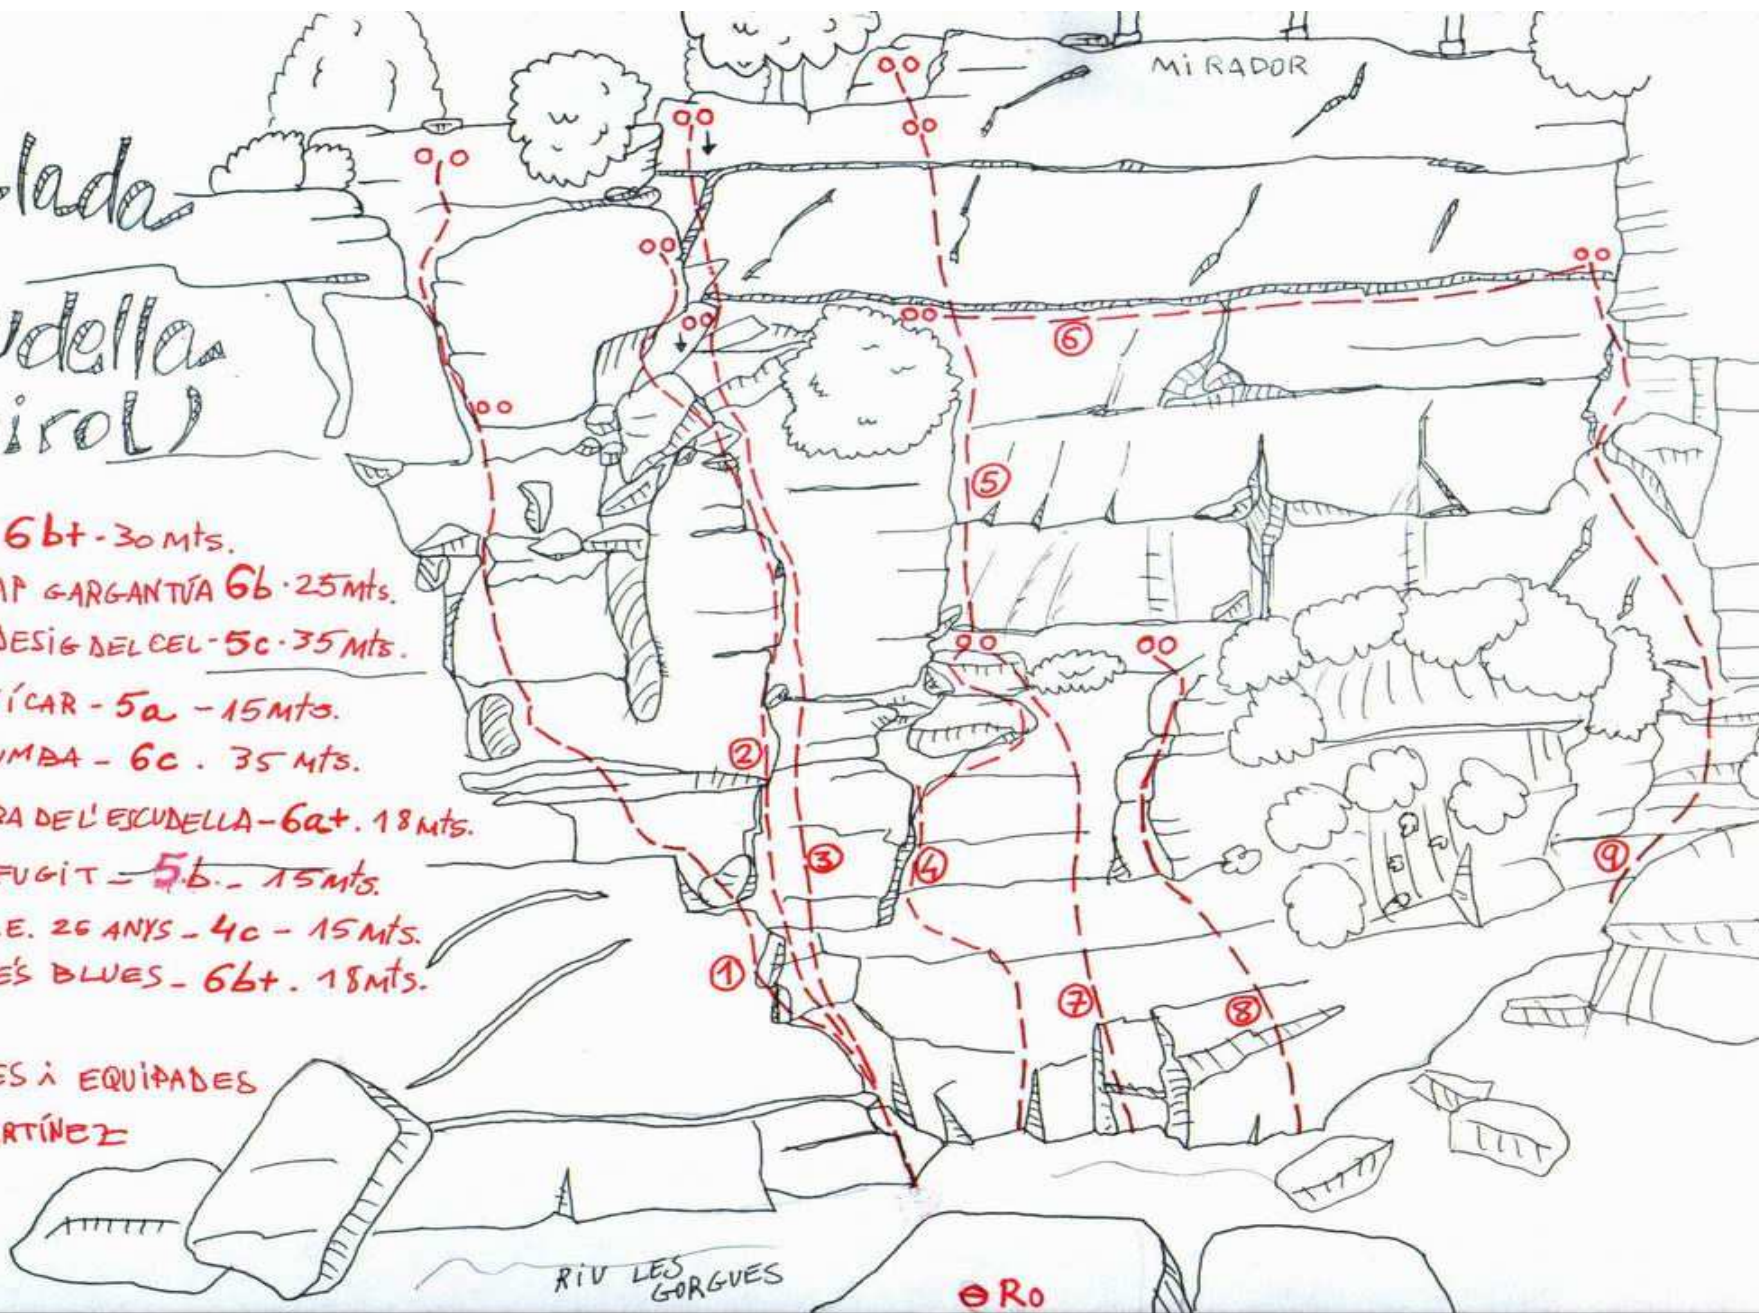 lada
udella
irol)
6b+ - 30 mts.
AP GARGANTÚA 6b · 25 mts.
DESIG DEL CEL - 5c · 35 mts.
ÍCAR - 5a - 15 mts.
UMBA - 6c . 35 mts.
RA DE L'ESCUDELLA - 6a+ . 18 mts.
FUGIT - 5.b. - 15 mts.
.E. 26 ANYS - 4c - 15 mts.
ES BLUES - 6b+ . 18 mts.
ES i EQUIPADES
RTÍNEZ
MIRADOR
6
5
2
3
4
9
1
7
8
RIU LES
GORGUES
Ro